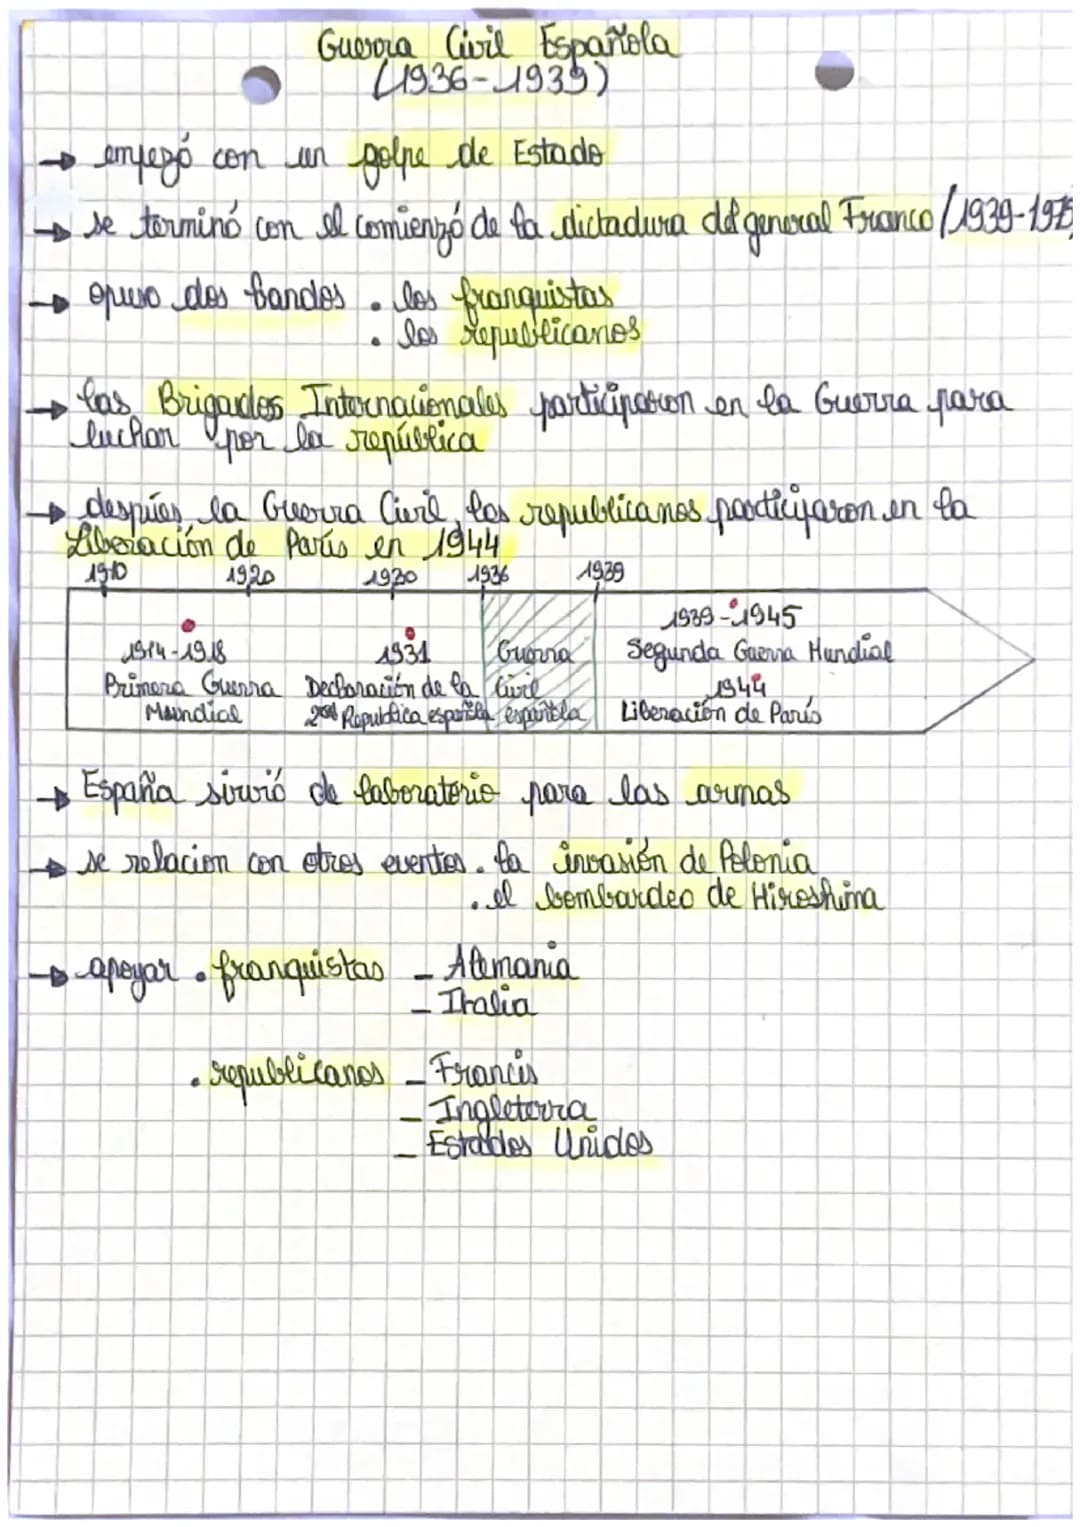 Guerra Civil Española
(1936-1939)
→ empezó con un golpe de Estado
→ se terminó con el comienzó de la dictadura del general Franco (1939-1975)
→ opuso dos bandos . los franquistas
. los republicanos
→ las Brigades Internacionales participaron en la Guerra para
luchar por la república
→ despúes la Guerra Civil, los republicanos participaron en la
Liberación de París en 1944
1910 1920 1930 1936 1939
1914-1918 1931 Guerra 1939-1945
Primera Guerra Declaración de la Civil Segunda Guerra Mundial
Mundial 2nd Republica española española 1944
Liberación de París
→ España sirvió de laboratorio para las armas
→ se relacion con otros eventos . la invasión de Polonia
. el bombardeo de Hiroshima
→ apoyar . franquistas - Alemania
- Italia
. republicanos - Francis
- Ingleterra
- Estados Unidos